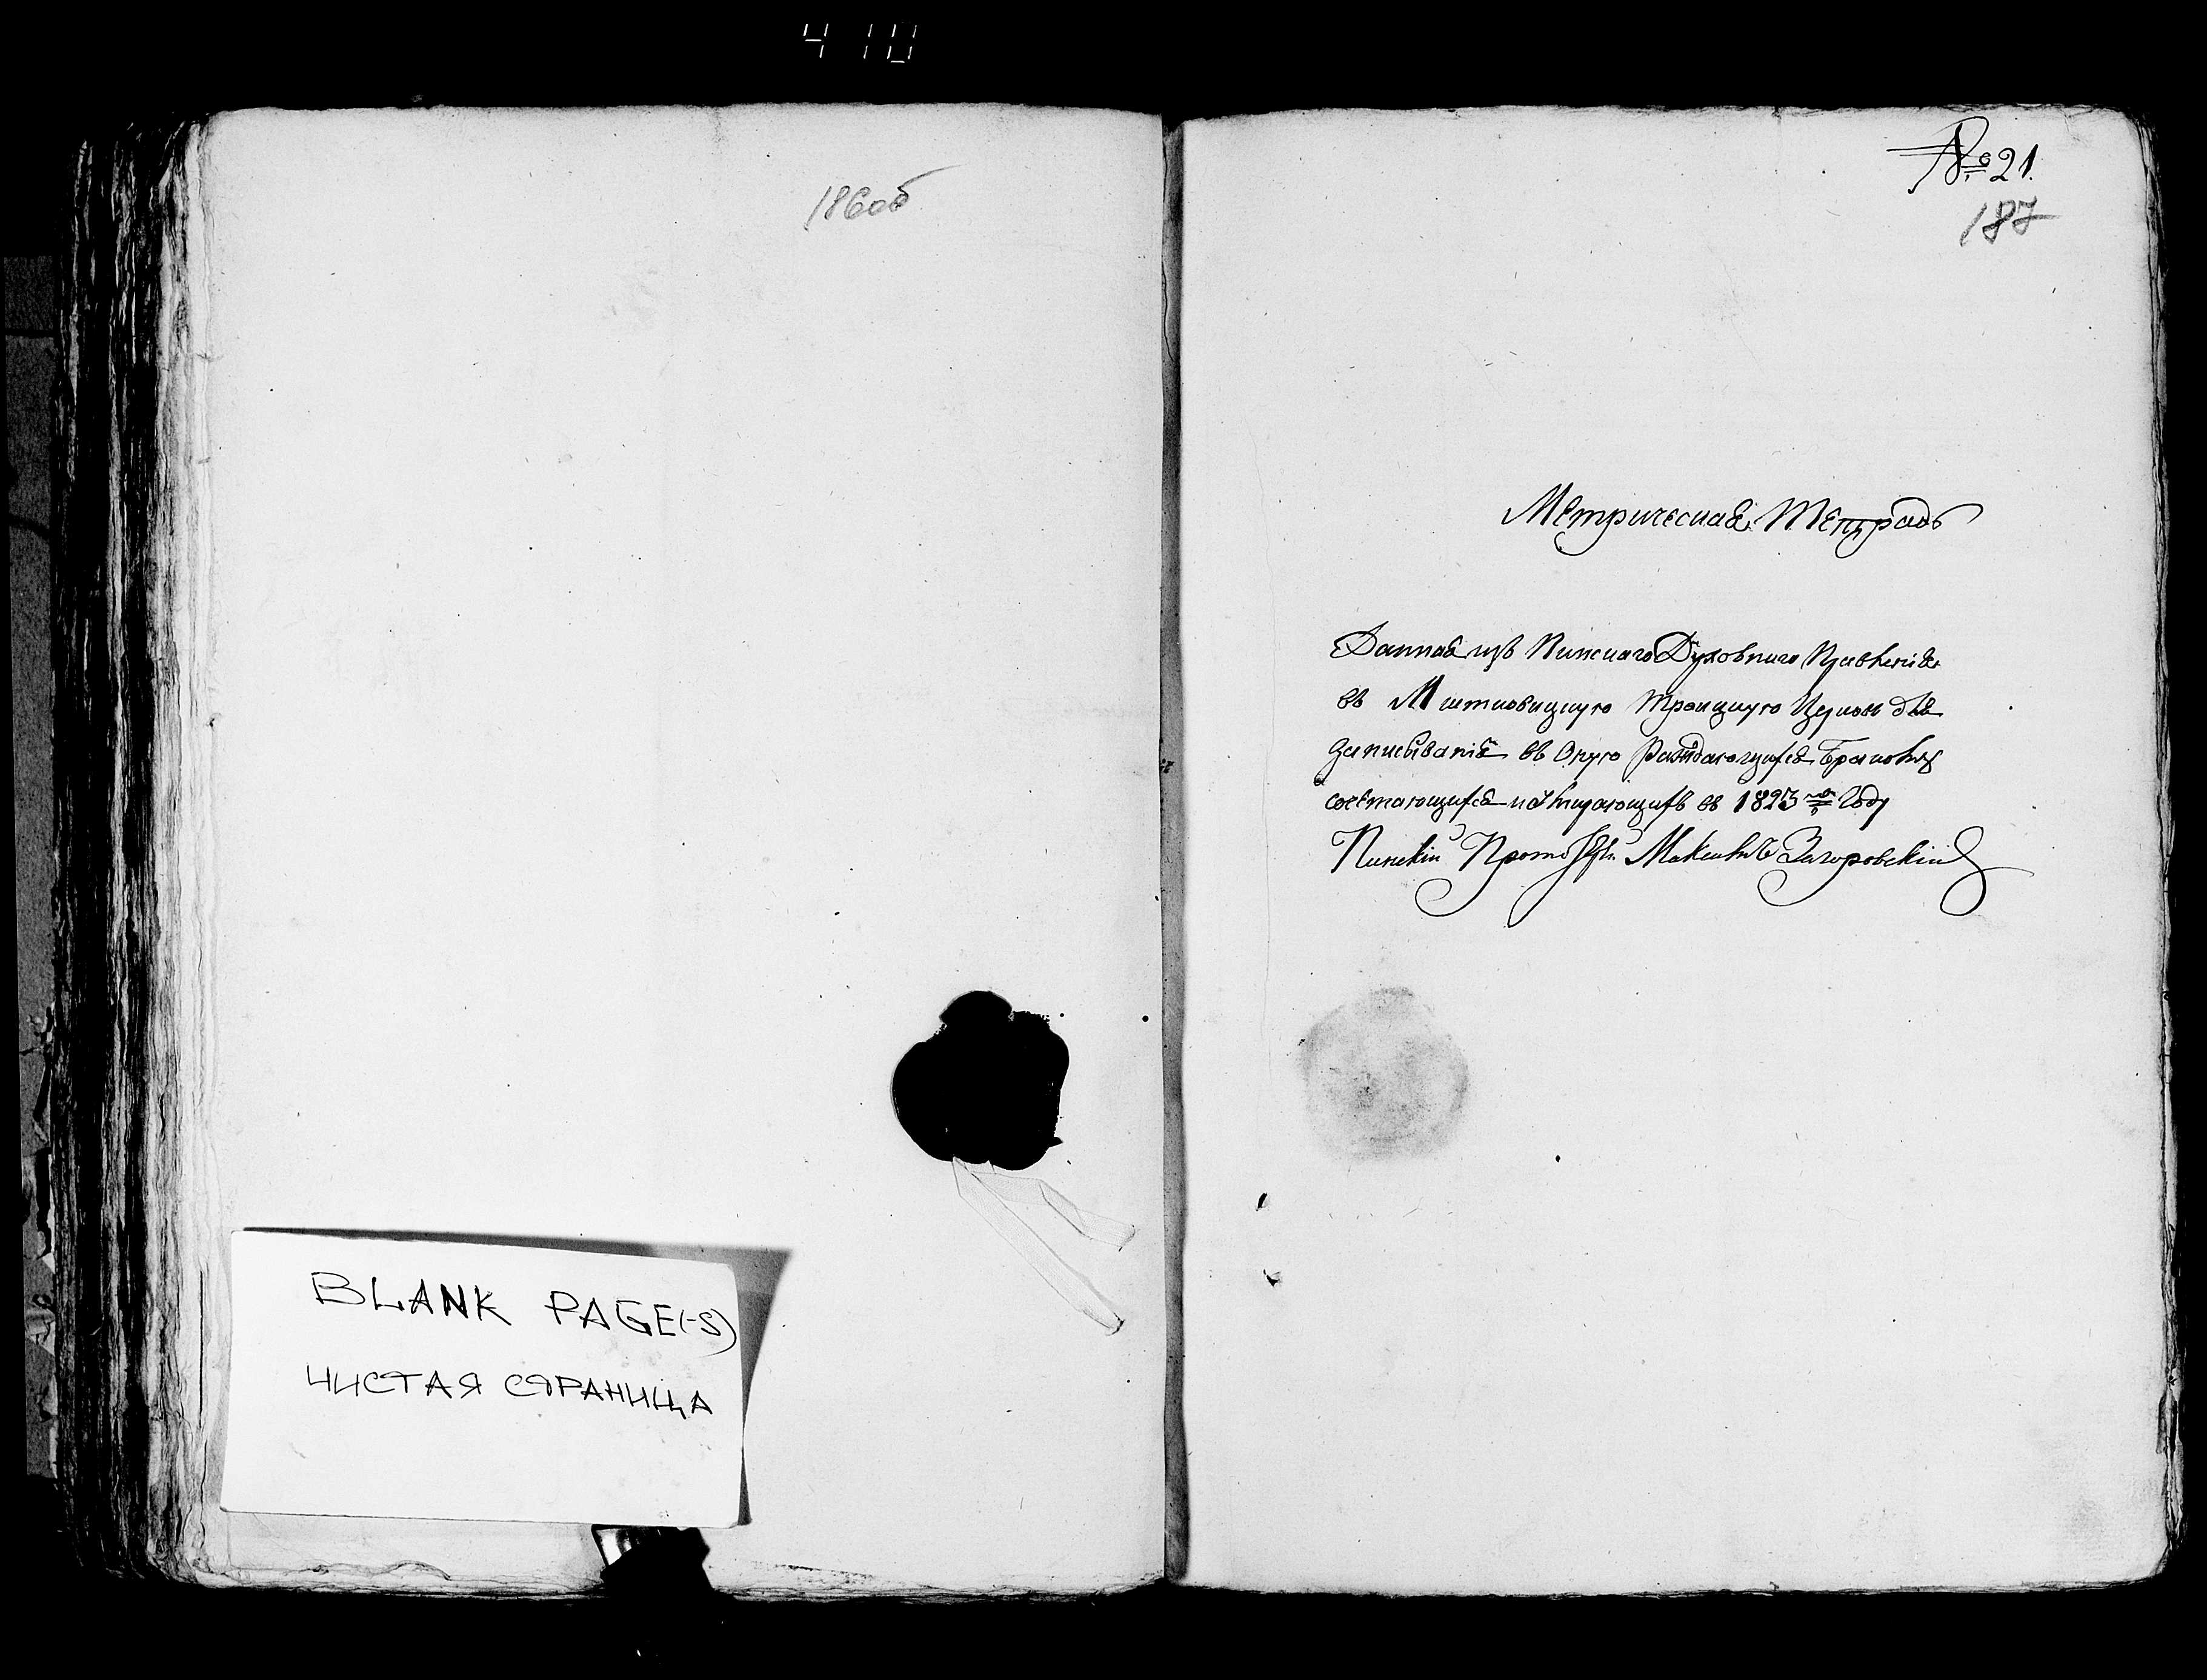 410
186об
BLANK PAGE(-S)
ЧИСТАЯ СТРАНИЦА
№ 21.
187
Метрическая Тетрадь
Данная изъ Пинскаго Духовнаго Правленія
въ Мутновицкую Троицкую Церковь для
записыванія въ Оную Раждающихся Бракомъ
сочетающихся и умирающихъ въ 1823 Году
Пинскій Максимъ Загоровскій